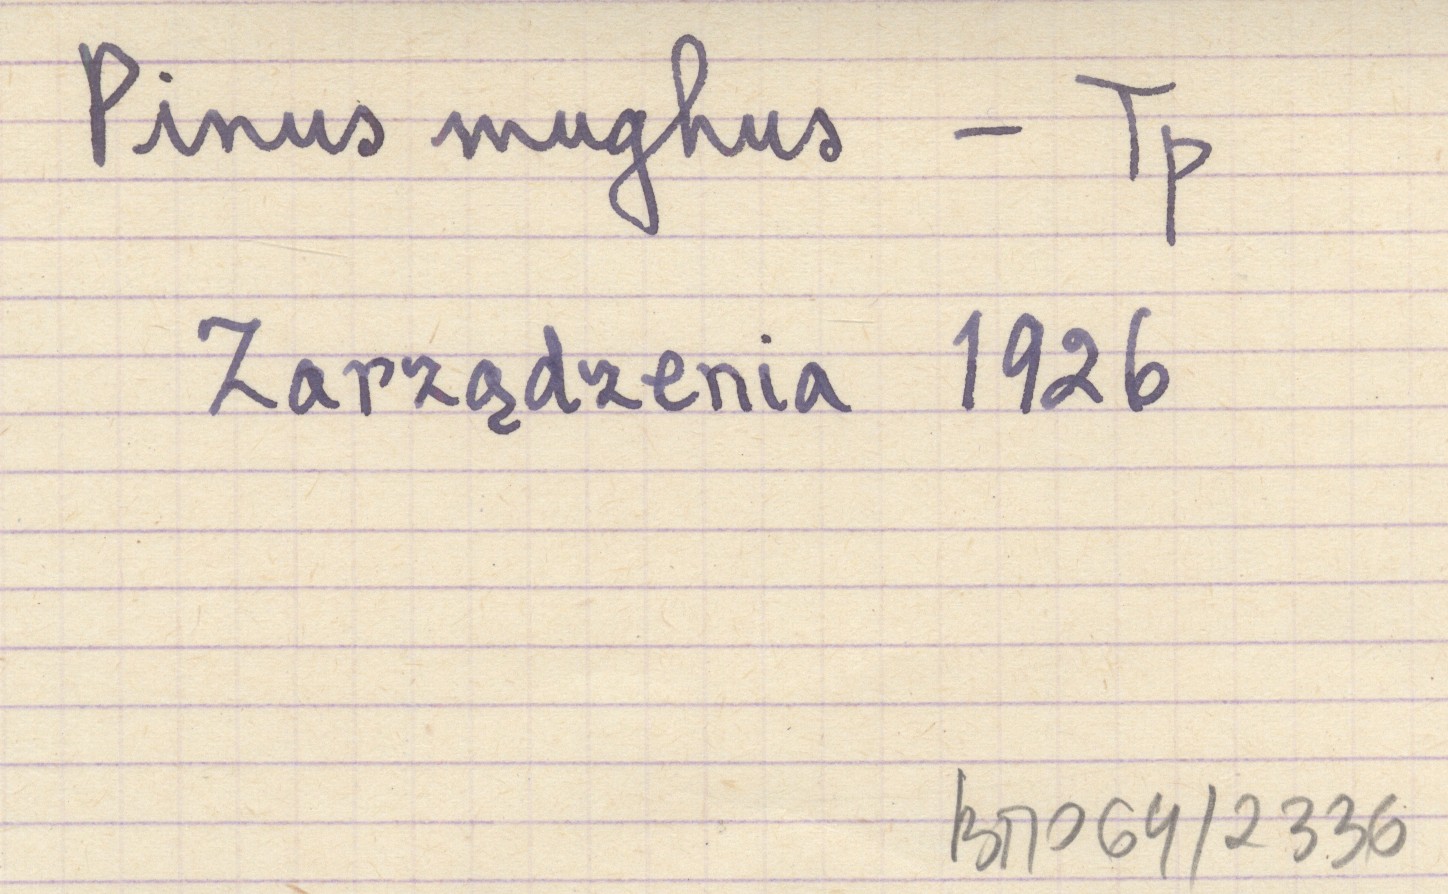 Pinus mughus – Tp
Zarządzenia 1926
ВПО64/2336